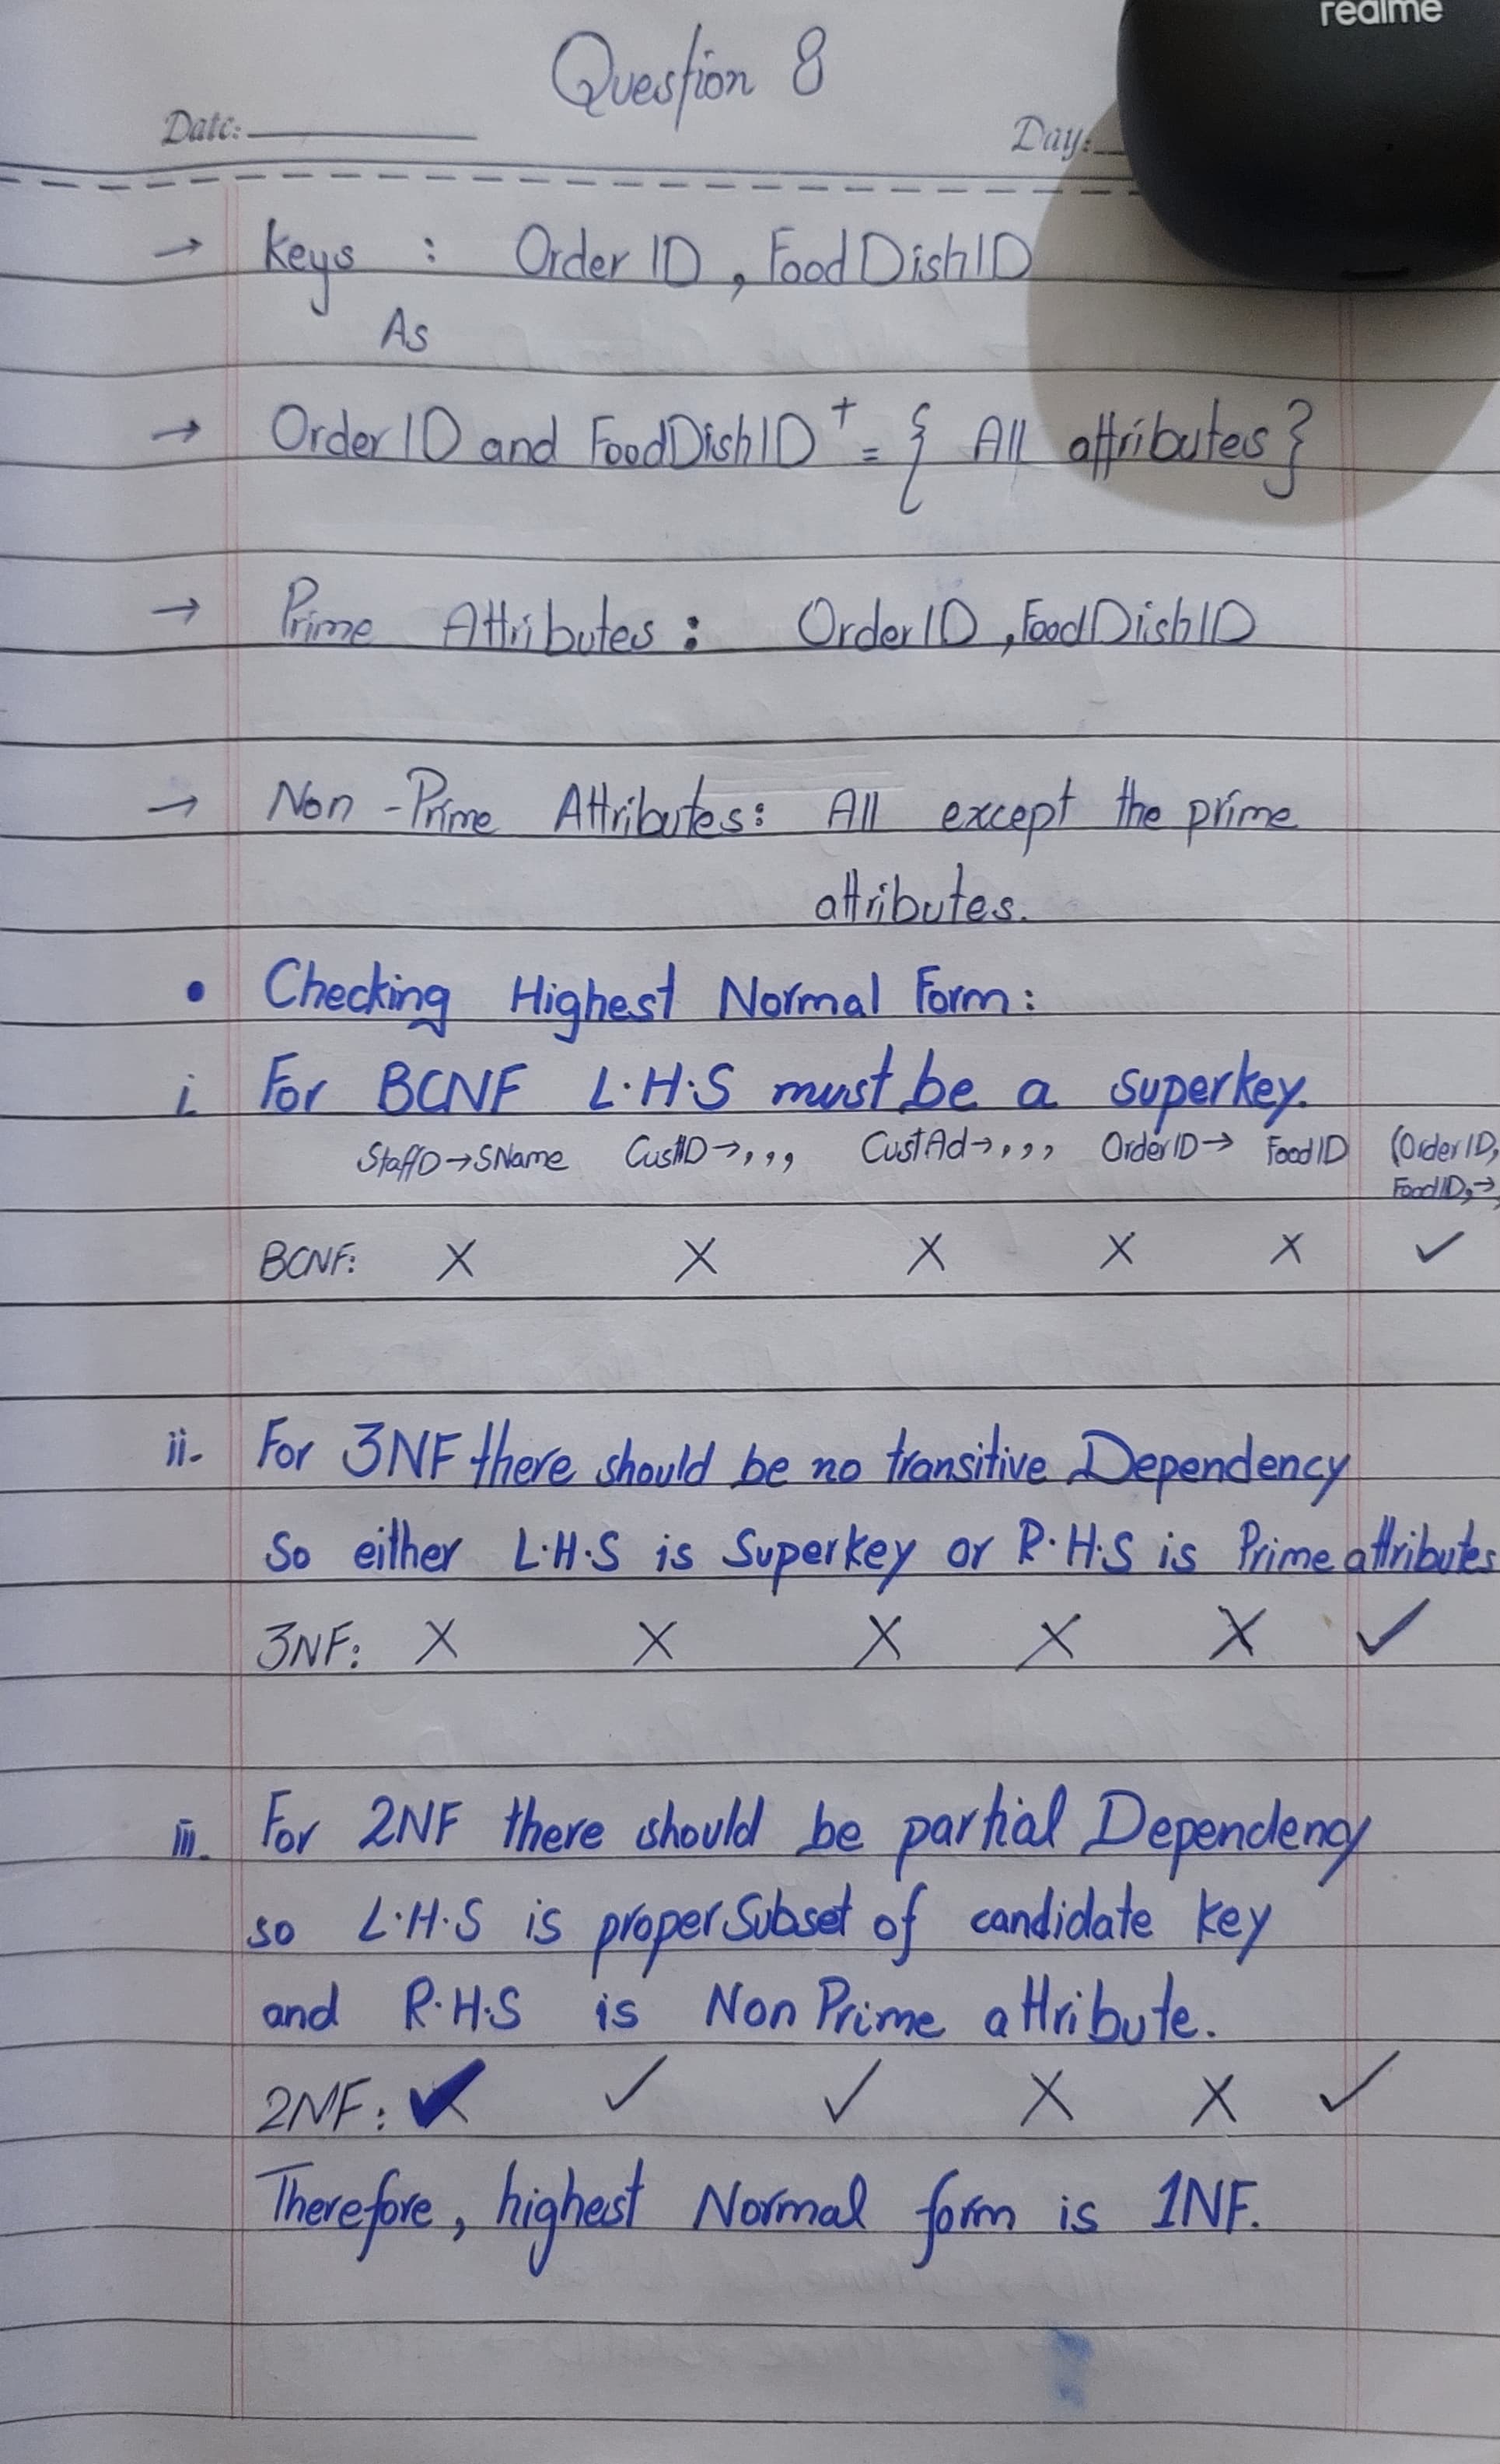 realme
Question 8
Date:
Day:
→ Keys : Order ID , FoodDishID
As
→ OrderID and FoodDishID⁺ = { All attributes}
→ Prime Attributes : OrderID , FoodDishID
→ Non - Prime Attributes: All except the prime
attributes.
• Checking Highest Normal Form:
i. For BCNF L.H.S must be a superkey.
StaffID→SName CustID→,,, CustAd→,,, OrderID→ FoodID (OrderID,
FoodID,→,
BCNF: X X X X X ✓
ii. For 3NF there should be no transitive Dependency
So either L.H.S is Superkey or R.H.S is Prime attributes
3NF: X X X X X ✓
iii. For 2NF there should be partial Dependency
so L.H.S is proper Subset of candidate key
and R.H.S is Non Prime attribute.
2NF: ✓ ✓ ✓ X X ✓
Therefore, highest Normal form is 1NF.